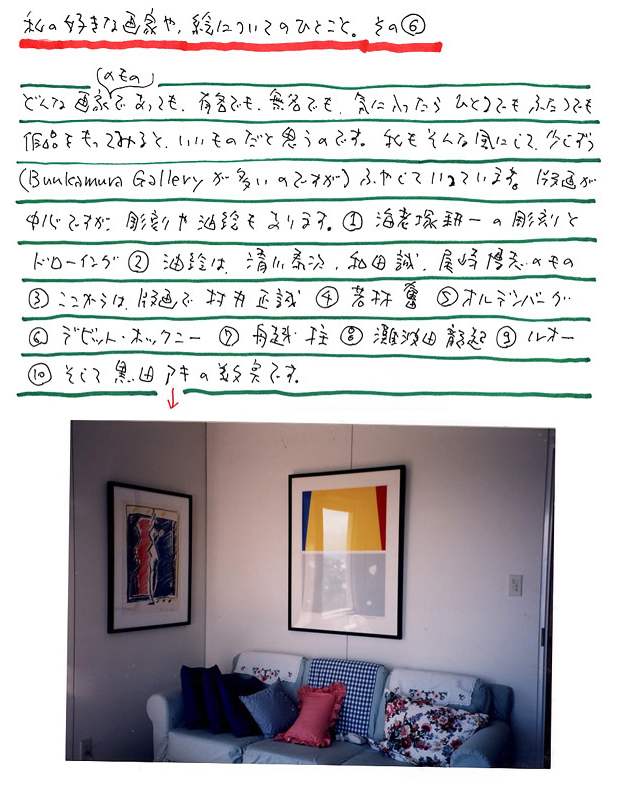 私の好きな画家や、絵についてのひとこと。その⑥
のもの
どんな画家であっても、有名でも、無名でも、気に入ったらひとつでもふたつでも
作品をもってみると、いいものだと思うのです。私もそんな風にして、少しずつ
(Bunkamura Galleryが多いのですが)ふやしていっています。版画が
中心ですが彫刻や油絵もあります。①海老塚耕一の彫刻と
ドローイング②油絵は、清川泰次、和田誠、尾崎のもの
③ここからは、版画で村井正誠④若林奮⑤オルデンバーグ
⑥デビット・ホックニー⑦舟越桂⑧難波田龍起⑨ルオー
⑩そして黒田アキの数点です。